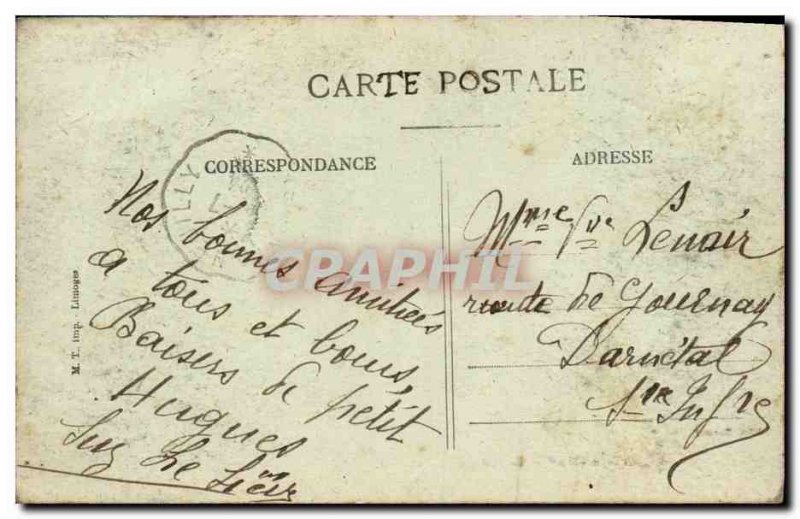 CARTE POSTALE
CORRESPONDANCE
ADRESSE
LLY
Nos bonnes amitiés
a tous et bons
Baisers de petit
Hugues
Suz Le
M. T. imp. - Limoges
CPRAPHIL
Mme Vve Lenoir
route de Gournay
a Darnétal
Sne Infre